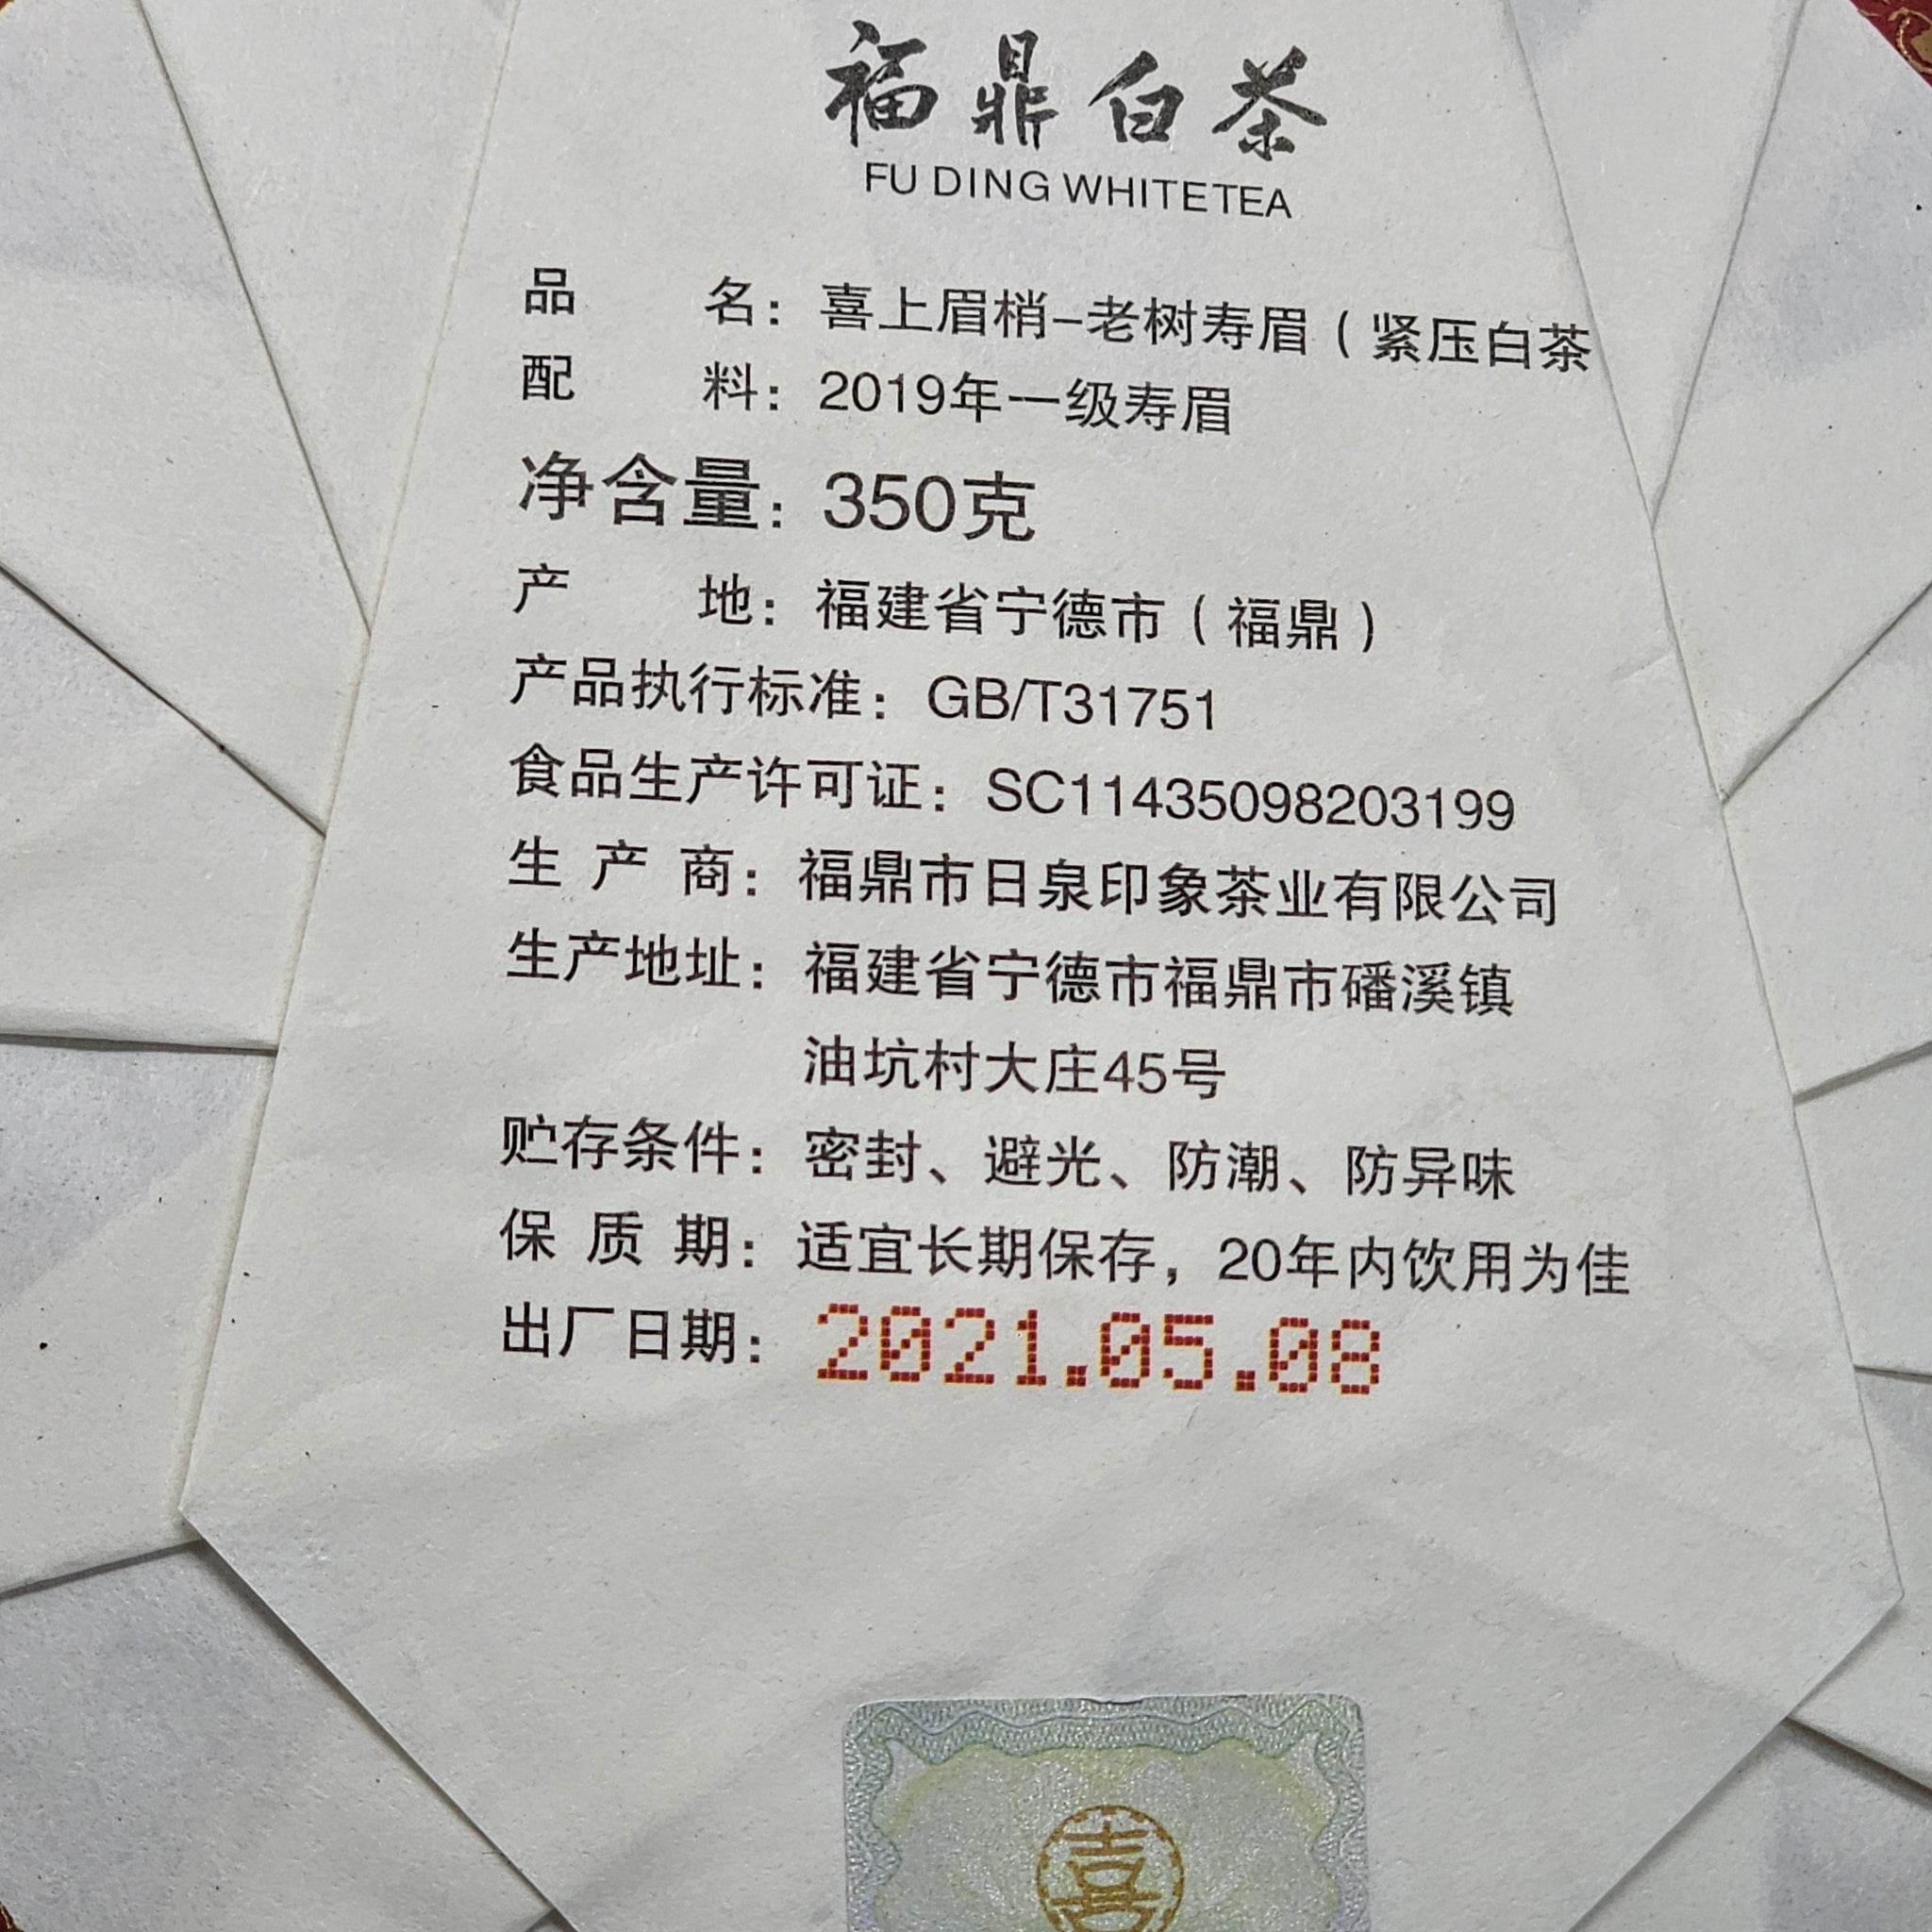 福鼎白茶
FU DING WHITETEA
品名：喜上眉梢-老树寿眉（紧压白茶
配料：2019年一级寿眉
净含量：350克
产地：福建省宁德市（福鼎）
产品执行标准：GB/T31751
食品生产许可证：SC11435098203199
生产商：福鼎市日泉印象茶业有限公司
生产地址：福建省宁德市福鼎市磻溪镇
油坑村大庄45号
贮存条件：密封、避光、防潮、防异味
保质期：适宜长期保存，20年内饮用为佳
出厂日期：2021.05.08
喜